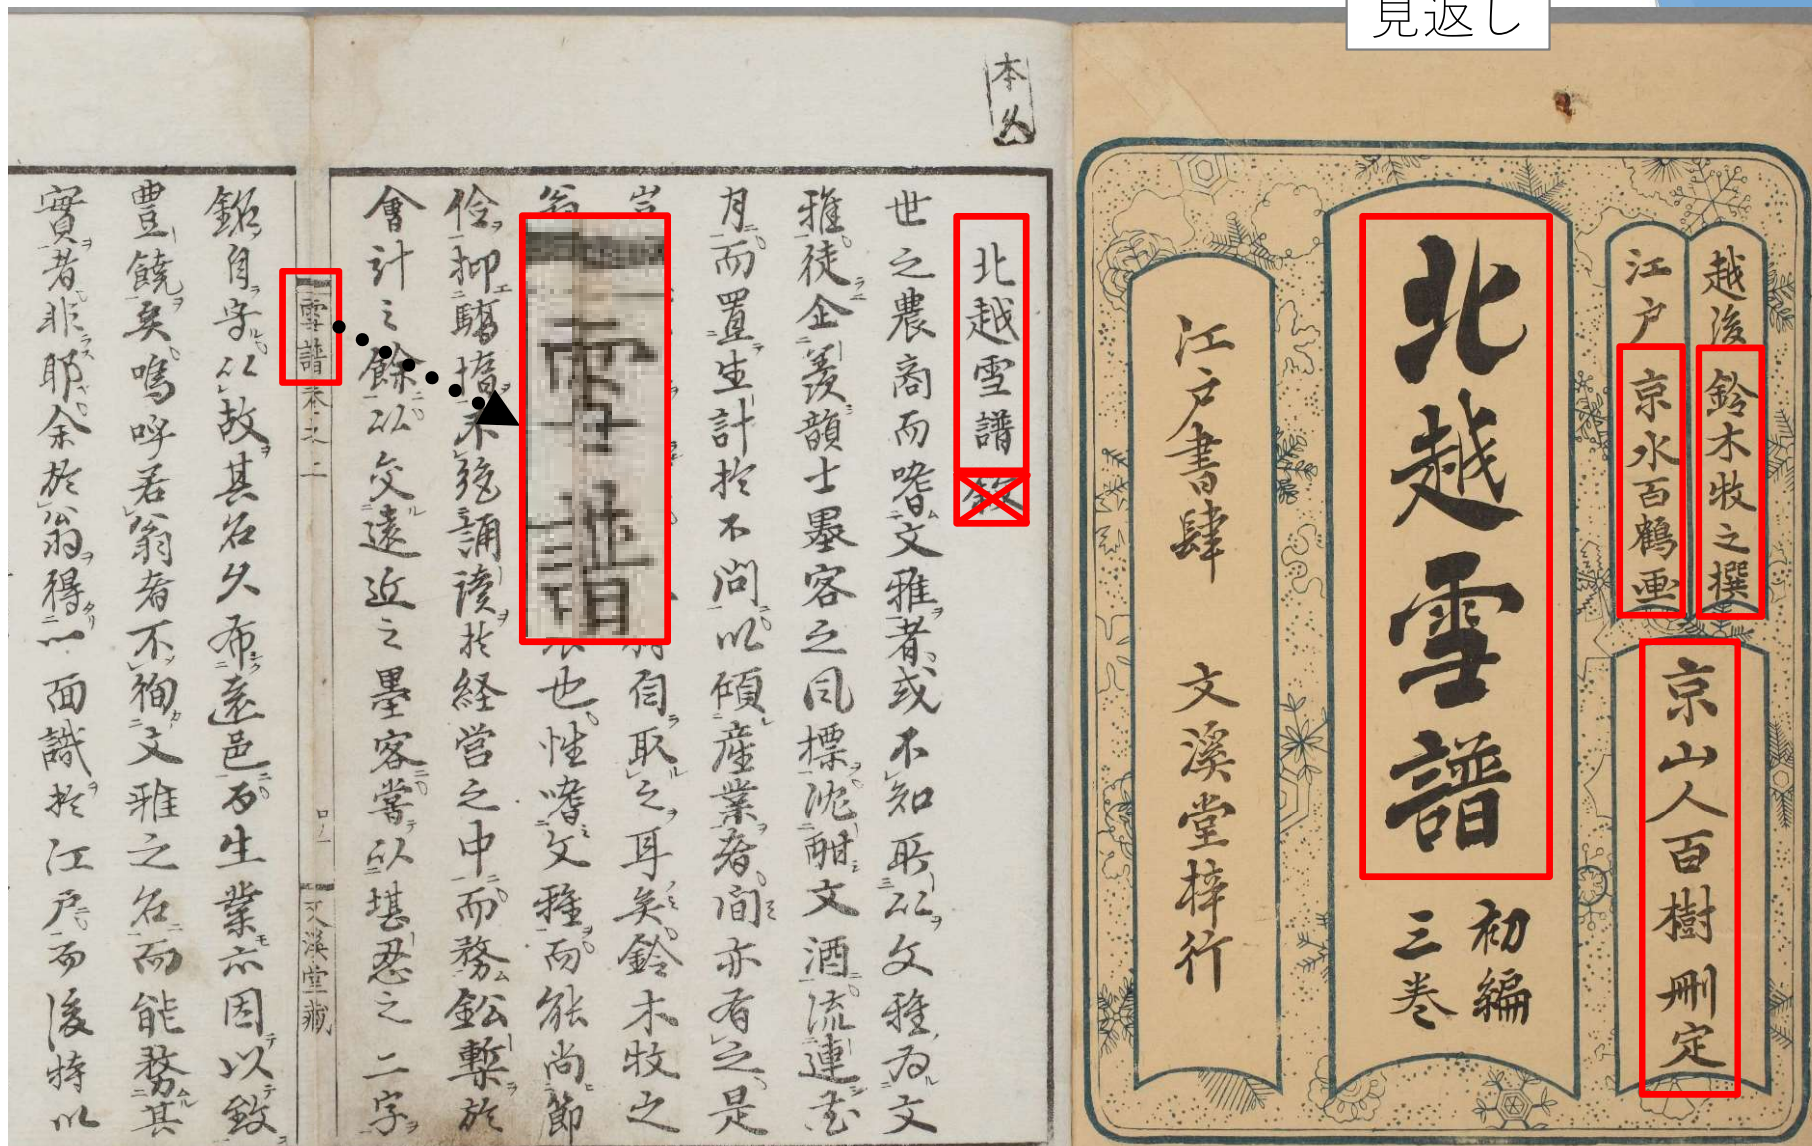 見返し
越後 鈴木牧之撰
江戸 京水百鶴画
京山人百樹刪定
北越雪譜
初編
三巻
江戸書肆 文溪堂梓行
本
北越雪譜叙
世之農商而嗜文雅者或不知所以文雅為文
雅徒企羨韻士墨客之風標沈酣文酒流連花
月而置生計於不問以傾産業者間亦有之是
豈 自取之耳矣鈴木牧之
翁 也性嗜文雅而能尚節
倹抑驕惰不絶誦読於経営之中而務鉛槧於
會計之餘以交遠近之墨客嘗以堪忍之二字
雪譜
雪譜巻之二 文溪堂蔵
銘自守以故其名久布遠邑而生業亦因以致
豊饒矣嗚呼若翁者不徇文雅之名而能務其
實者非耶余於翁得一面識於江戸而後特以